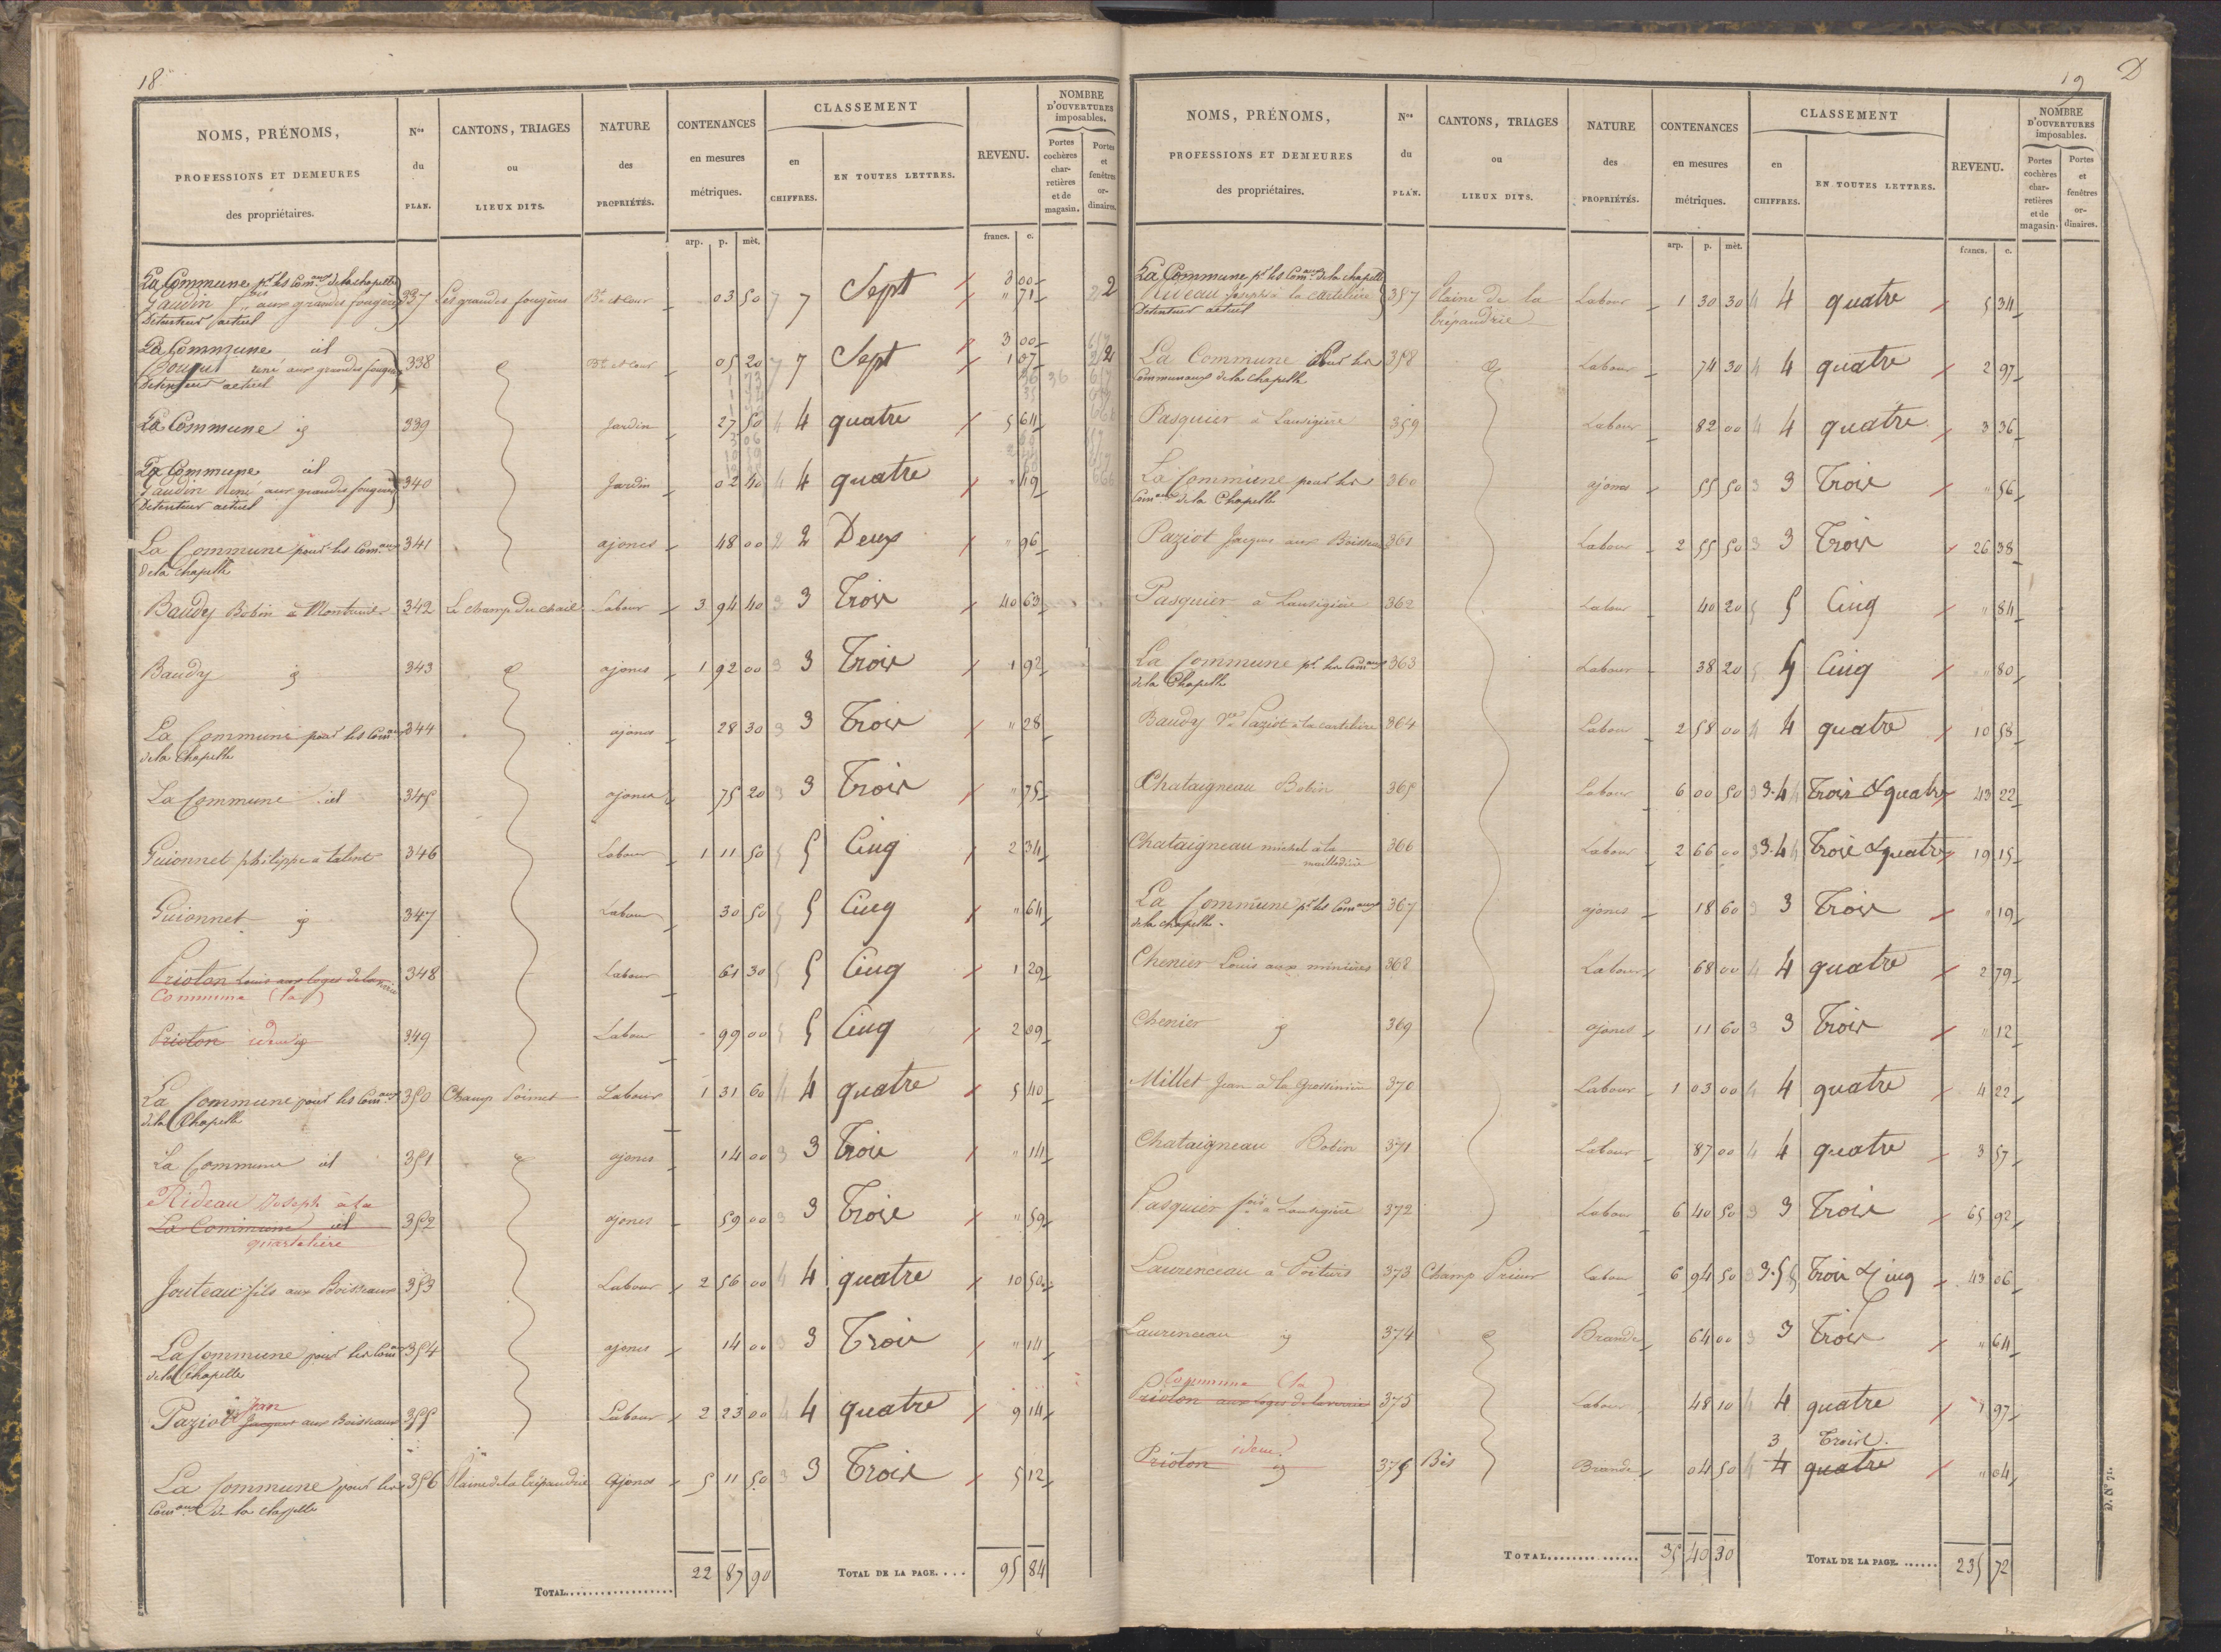 18
NOMS, PRÉNOMS, PROFESSIONS ET DEMEURES des propriétaires. | Nos du PLAN. | CANTONS, TRIAGES ou LIEUX DITS. | NATURE des PROPRIÉTÉS. | CONTENANCES en mesures métriques. | CLASSEMENT en CHIFFRES. | EN TOUTES LETTRES. | REVENU. | NOMBRE D'OUVERTURES imposables. Portes cochères charretières et de magasin. | Portes et fenêtres ordinaires.
arp. p. mèt. francs. c.
La Commune pr les Comaux de la chapelle
Gaudin aux grandes fougères 337 Les grandes fougères Bt et Cour 03 50 7 7 Sept 3 00 " 71 2
Detenteur actuel
La Commune id
René aux grandes fougères 338 Bt et Cour 05 20 7 7 Sept 3 00 1 07 2
Detenteur actuel
La Commune id 339 Jardin 27 50 4 4 quatre 5 64
La Commune id
Gaudin René aux grandes fougères 340 Jardin 02 40 4 4 quatre " 49
Detenteur actuel
La Commune pour les Comaux 341 ajones 48 00 2 2 Deux " 96
de la Chapelle
Baudy Bobin à Montreuil 342 Le champ du chail Labour 3 94 40 3 3 Trois 40 63
Baudy id 343 ajones 1 92 00 3 3 Trois 1 92
La Commune pour les Comaux 344 ajones 28 30 3 3 Trois " 28
de la Chapelle
La Commune id 345 ajones 75 20 3 3 Trois " 75
Guionnet philippe à talent 346 Labour 1 11 50 5 5 Cinq 2 34
Guionnet id 347 Labour 30 50 5 5 Cinq " 64
Prioton Louis aux loges 348 Labour 61 30 5 5 Cinq 1 29
Commune (la)
Prioton idem id 349 Labour 99 00 5 5 Cinq 2 09
La Commune pour les Comaux 350 Champ Poimet Labour 1 31 60 4 4 quatre 5 40
de la Chapelle
La Commune id 351 ajones 14 00 3 3 Trois " 14
Rideau Joseph à la
La Commune id 352 ajones 59 00 3 3 Trois " 59
quartelière
Jouteau fils aux Boisseaux 353 Labour 2 56 00 4 4 quatre 10 50
La Commune pour les Comaux 354 ajones 14 00 3 3 Trois " 14
de la Chapelle
Jean
Paziot Jacques aux Boisseaux 355 Labour 2 23 00 4 4 quatre 9 14
La Commune pour les 356 Plaine de la trépaudrie Ajones 5 11 50 3 3 Trois 5 12
Comaux de la chapelle
TOTAL 22 87 90 TOTAL DE LA PAGE. 95 84
19 D
NOMS, PRÉNOMS, PROFESSIONS ET DEMEURES des propriétaires. | Nos du PLAN. | CANTONS, TRIAGES ou LIEUX DITS. | NATURE des PROPRIÉTÉS. | CONTENANCES en mesures métriques. | CLASSEMENT en CHIFFRES. | EN TOUTES LETTRES. | REVENU. | NOMBRE D'OUVERTURES imposables. Portes cochères charretières et de magasin. | Portes et fenêtres ordinaires.
arp. p. mèt. francs. c.
La Commune pr les Comaux de la chapelle
Rideau Joseph à la cartelière 357 Plaine de la Labour 1 30 30 4 4 quatre 5 34
Detenteur actuel trépaudrie
La Commune pour les 358 Labour 74 30 4 4 quatre 2 97
Communaux de la Chapelle
Pasquier à Lausigière 359 Labour 82 00 4 4 quatre 3 36
La Commune pour les 360 ajones 55 50 3 3 Trois " 56
Comaux de la Chapelle
Paziot Jacques aux Boisseaux 361 Labour 2 55 50 3 3 Trois 26 38
Pasquier à Lausigière 362 Labour 40 20 5 5 Cinq " 84
La Commune pr les Comaux 363 Labour 38 20 5 5 Cinq " 80
de la Chapelle
Baudy Ve Paziot à la cartelière 364 Labour 2 58 00 4 4 quatre 10 58
Chataigneau Bobin 365 Labour 6 00 50 3 3.4 4 Trois & quatre 43 22
Chataigneau michel à la 366 Labour 2 66 00 3 3.4 4 Trois & quatre 19 15
La Commune pr les Comaux 367 ajones 18 60 3 3 Trois " 19
de la chapelle
Chenier Louis aux minières 368 Labour 68 00 4 4 quatre 2 79
Chenier id 369 ajones 11 60 3 3 Trois " 12
Millet Jean à la Grossinière 370 Labour 1 03 00 4 4 quatre 4 22
Chataigneau Bobin 371 Labour 87 00 4 4 quatre 3 57
Pasquier fois à Lausigière 372 Labour 6 40 50 3 3 Trois 65 92
Laurenceau à Poitiers 373 Champ Prieur Labour 6 94 50 3 3.5 5 Trois & Cinq 43 06
Laurenceau id 374 Brande 64 00 3 3 Trois " 64
Commune (la)
Prioton aux loges 375 Labour 48 10 4 4 quatre 1 97
idem 3 Trois.
Prioton id 375 Bis Brande 04 50 4 4 quatre " 04
TOTAL 35 40 30 TOTAL DE LA PAGE. 235 72
D. No 71.